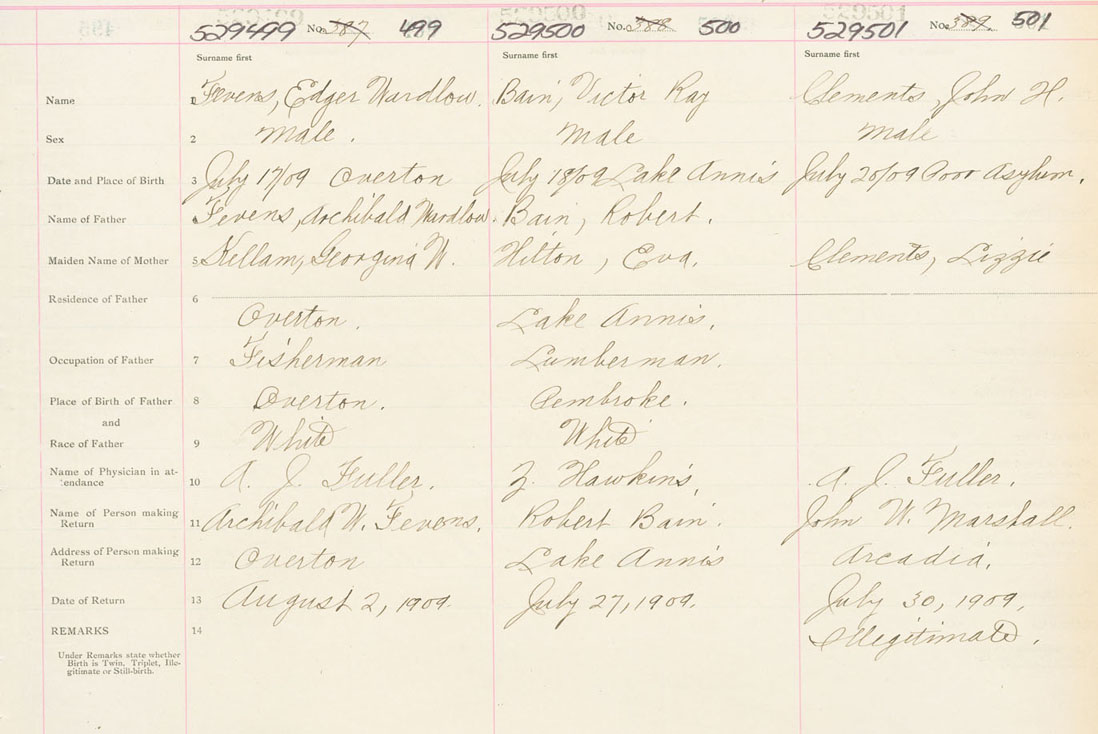 529499 No. 387 499 529500 No. 388 500 529501 No. 389 501
Surname first Surname first Surname first
Name 1 Fevens, Edger Wardlow. Bain, Victor Ray Clements, John H.
Sex 2 Male. Male Male
Date and Place of Birth 3 July 17/09 Overton July 18/09 Lake Annis July 20/09 Poor Asylum.
Name of Father 4 Fevens, Archibald Wardlow. Bain, Robert.
Maiden Name of Mother 5 Kellam, Georgina W. Hilton, Eva. Clements, Lizzie
Residence of Father 6
Overton. Lake Annis.
Occupation of Father 7 Fisherman Lumberman.
Place of Birth of Father 8 Overton. Pembroke.
and
Race of Father 9 White White
Name of Physician in at-
tendance 10 A. J. Fuller. Z. Hawkins, A. J. Fuller.
Name of Person making
Return 11 Archibald W. Fevens. Robert Bain. John W. Marshall.
Address of Person making
Return 12 Overton Lake Annis Arcadia.
Date of Return 13 August 2, 1909. July 27, 1909. July 30, 1909.
REMARKS 14 Illegitimate.
Under Remarks state whether
Birth is Twin, Triplet, Ille-
gitimate or Still-birth.